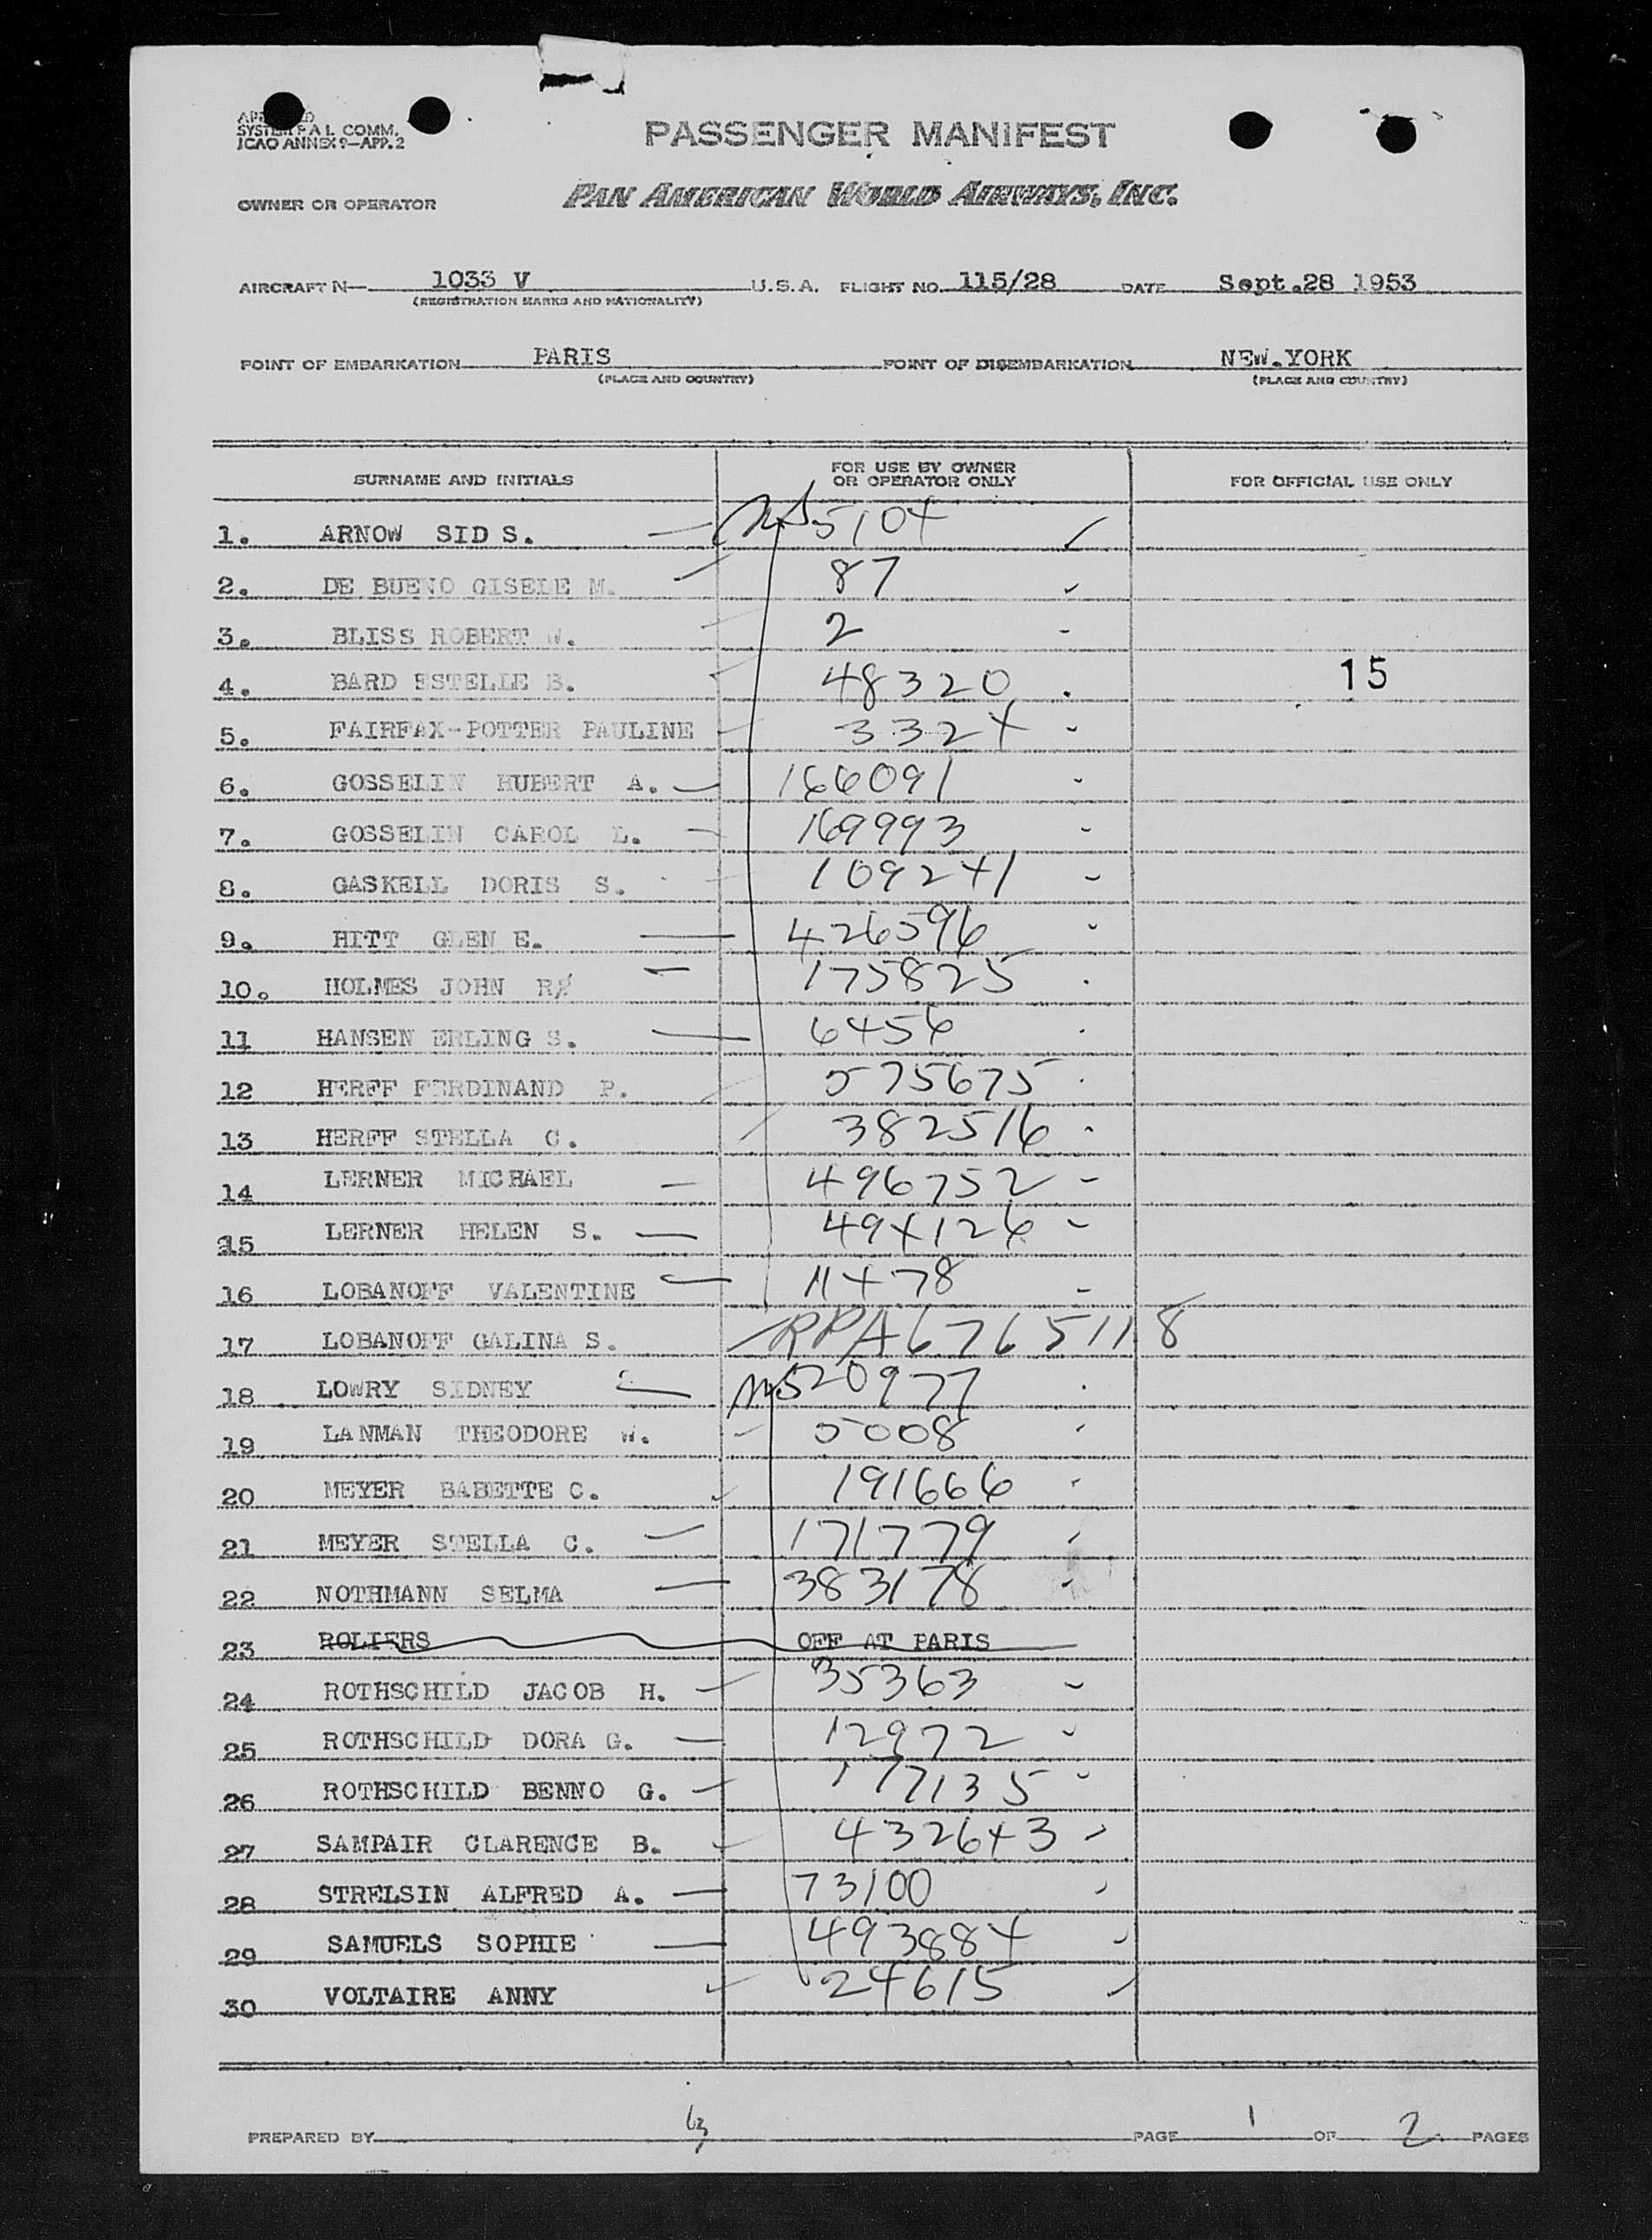 SYSTEM P.A.L. COMM.
ICAO ANNEX 9—APP. 2
PASSENGER MANIFEST
OWNER OR OPERATOR PAN AMERICAN WORLD AIRWAYS, INC.
AIRCRAFT N— 1033 V U.S.A. FLIGHT NO. 115/28 DATE Sept.28 1953
(REGISTRATION MARKS AND NATIONALITY)
POINT OF EMBARKATION PARIS POINT OF DISEMBARKATION NEW.YORK
(PLACE AND COUNTRY) (PLACE AND COUNTRY)
SURNAME AND INITIALS FOR USE BY OWNER OR OPERATOR ONLY FOR OFFICIAL USE ONLY
1. ARNOW SID S. 5104
2. DE BUENO GISELE M. 87
3. BLISS ROBERT W. 2
4. BARD ESTELLE B. 48320 15
5. FAIRFAX-POTTER PAULINE 3324
6. GOSSELIN HUBERT A. 166091
7. GOSSELIN CAROL L. 169993
8. GASKELL DORIS S. 109241
9. HITT GLEN E. 426596
10. HOLMES JOHN R 175825
11 HANSEN ERLING S. 6456
12 HERFF FERDINAND P. 575675
13 HERFF STELLA C. 382516
14 LERNER MICHAEL 496752
15 LERNER HELEN S. 494126
16 LOBANOFF VALENTINE 11478
17 LOBANOFF GALINA S. RPA6765118
18 LOWRY SIDNEY 520977
19 LANMAN THEODORE W. 5008
20 MEYER BABETTE C. 191666
21 MEYER STELLA C. 171779
22 NOTHMANN SELMA 383178
23 ROLIERS OFF AT PARIS
24 ROTHSCHILD JACOB H. 35363
25 ROTHSCHILD DORA G. 12972
26 ROTHSCHILD BENNO G. 177135
27 SAMPAIR CLARENCE B. 432643
28 STRELSIN ALFRED A. 73100
29 SAMUELS SOPHIE 493884
30 VOLTAIRE ANNY 24615
PREPARED BY PAGE 1 OF 2 PAGES